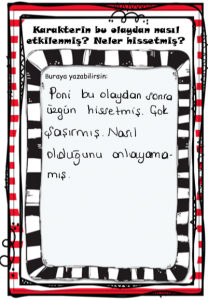 Karakterin bu olaydan nasıl
etkilenmiş? Neler hissetmiş?
Buraya yazabilirsin:
Poni bu olaydan sonra
üzgün hissetmiş. Çok
şaşırmış. Nasıl
olduğunu anlayama-
mış.